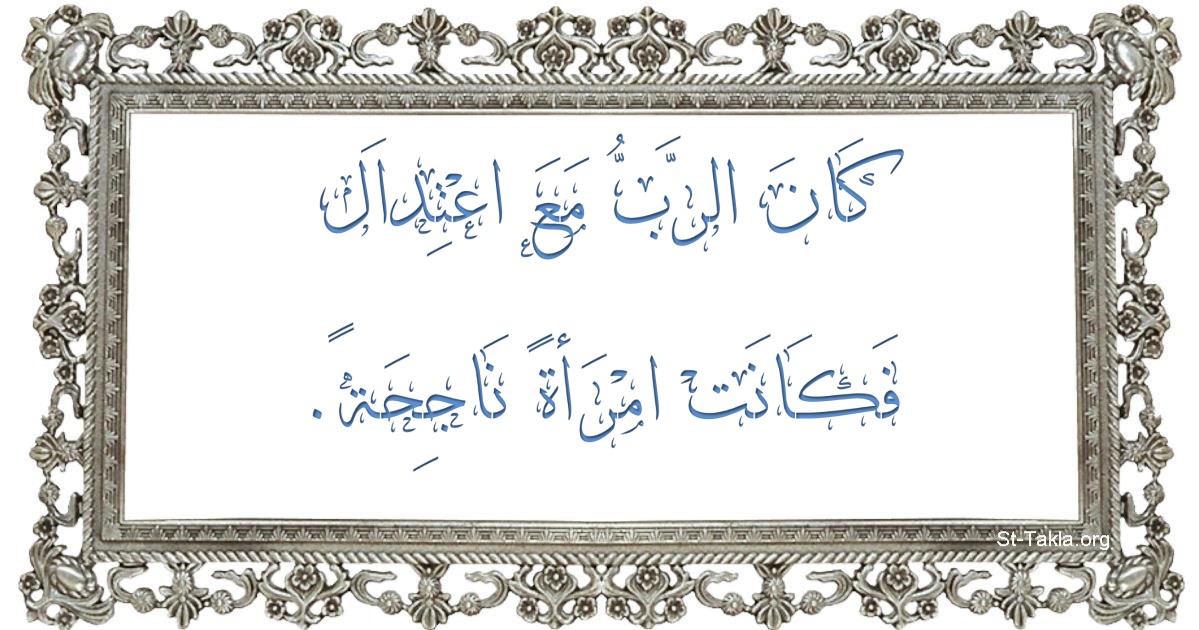 كَانَ الرَّبُّ مَعَ اعْتِدَالَ
فَكَانَتْ امْرَأَةً نَاجِحَةً.
St-Takla.org